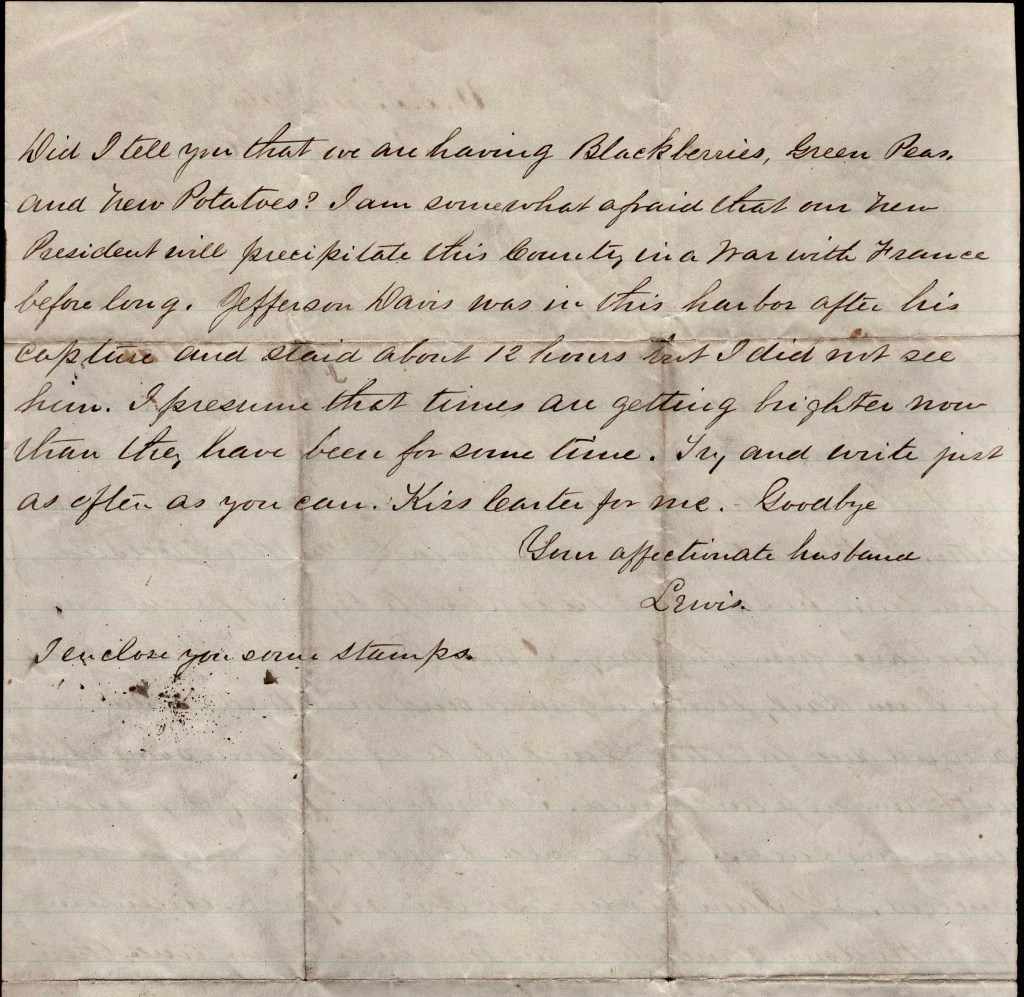 Did I tell you that we are having Blackberries, Green Peas.
and New Potatoes? I am somewhat afraid that our New
President will precipitate this County in a War with France
before long. Jefferson Davis was in this harbor after his
capture and staid about 12 hours but I did not see
him. I presume that times are getting brighter now
than they have been for some time. Try and write just
as often as you can. Kiss Carter for me. Goodbye
Your affectionate husband
Lewis.
I enclose you some stamps.